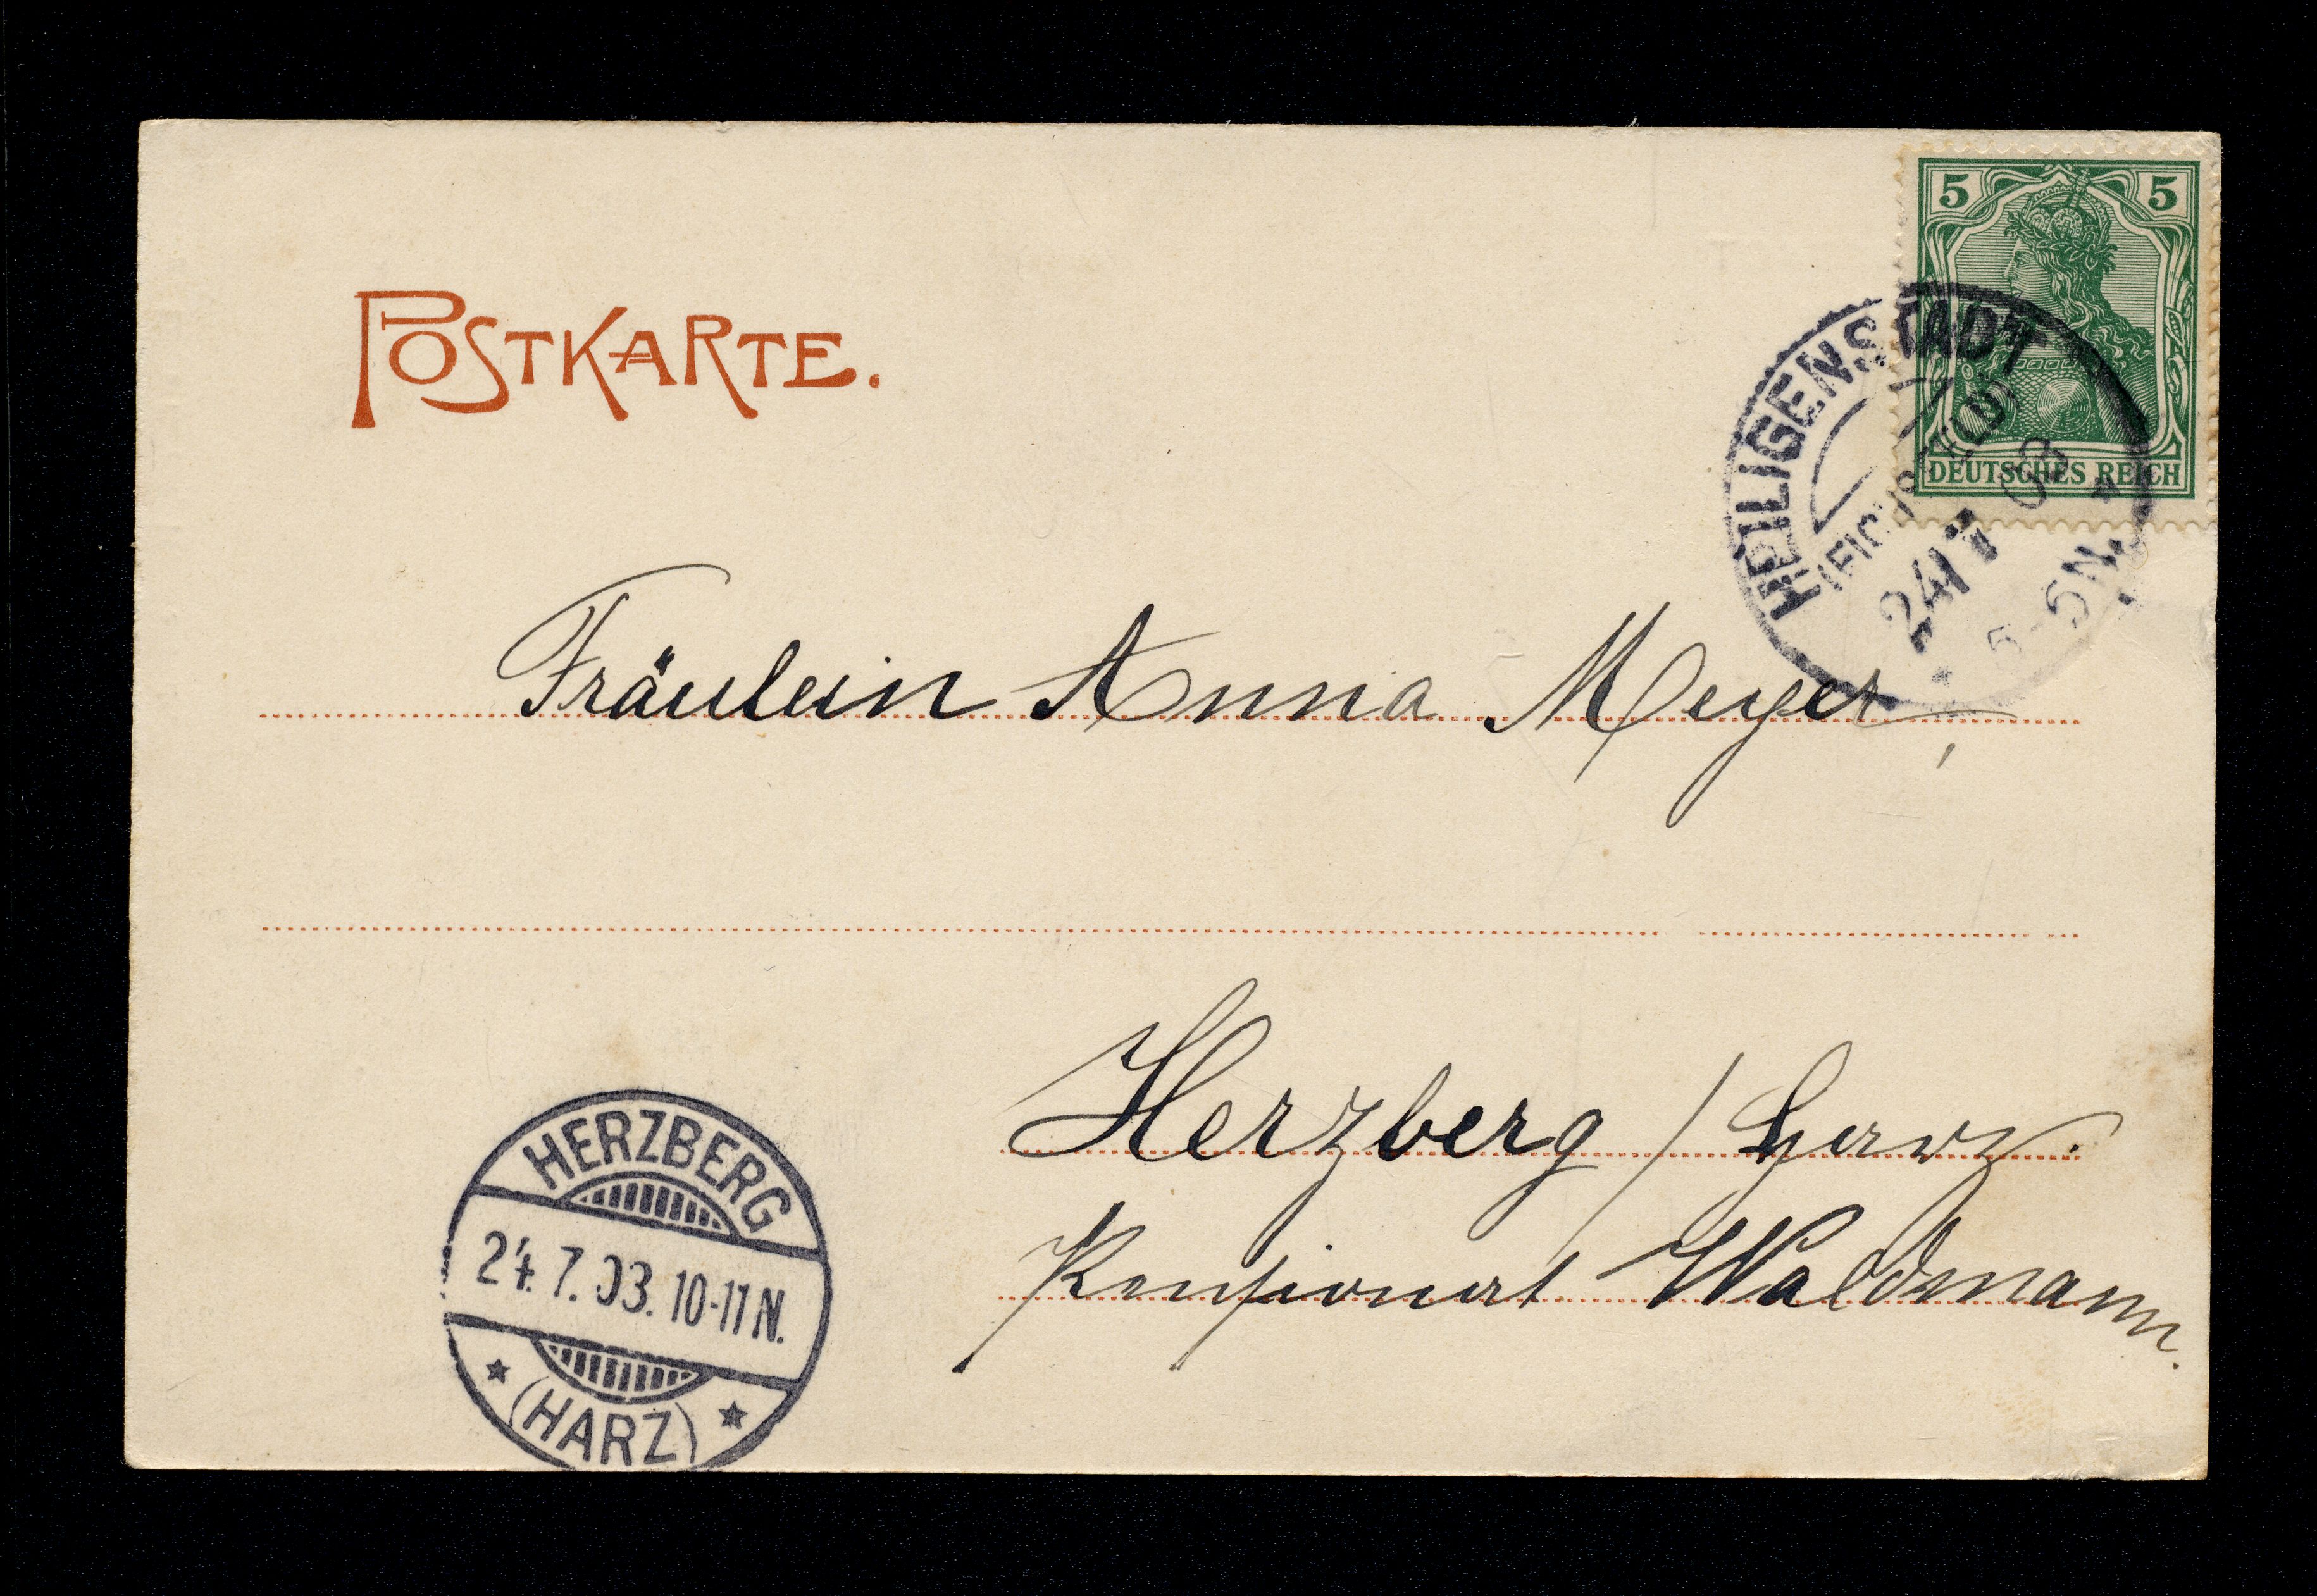 5 5
DEUTSCHES REICH
POSTKARTE.
HEILIGENSTADT
(EICHSFELD)
24 7 03
5-6N.
Fräulein Anna Meyer,
Herzberg / Harz.
Pensionat Waldmann.
HERZBERG
24.7.03.10-11N.
(HARZ)